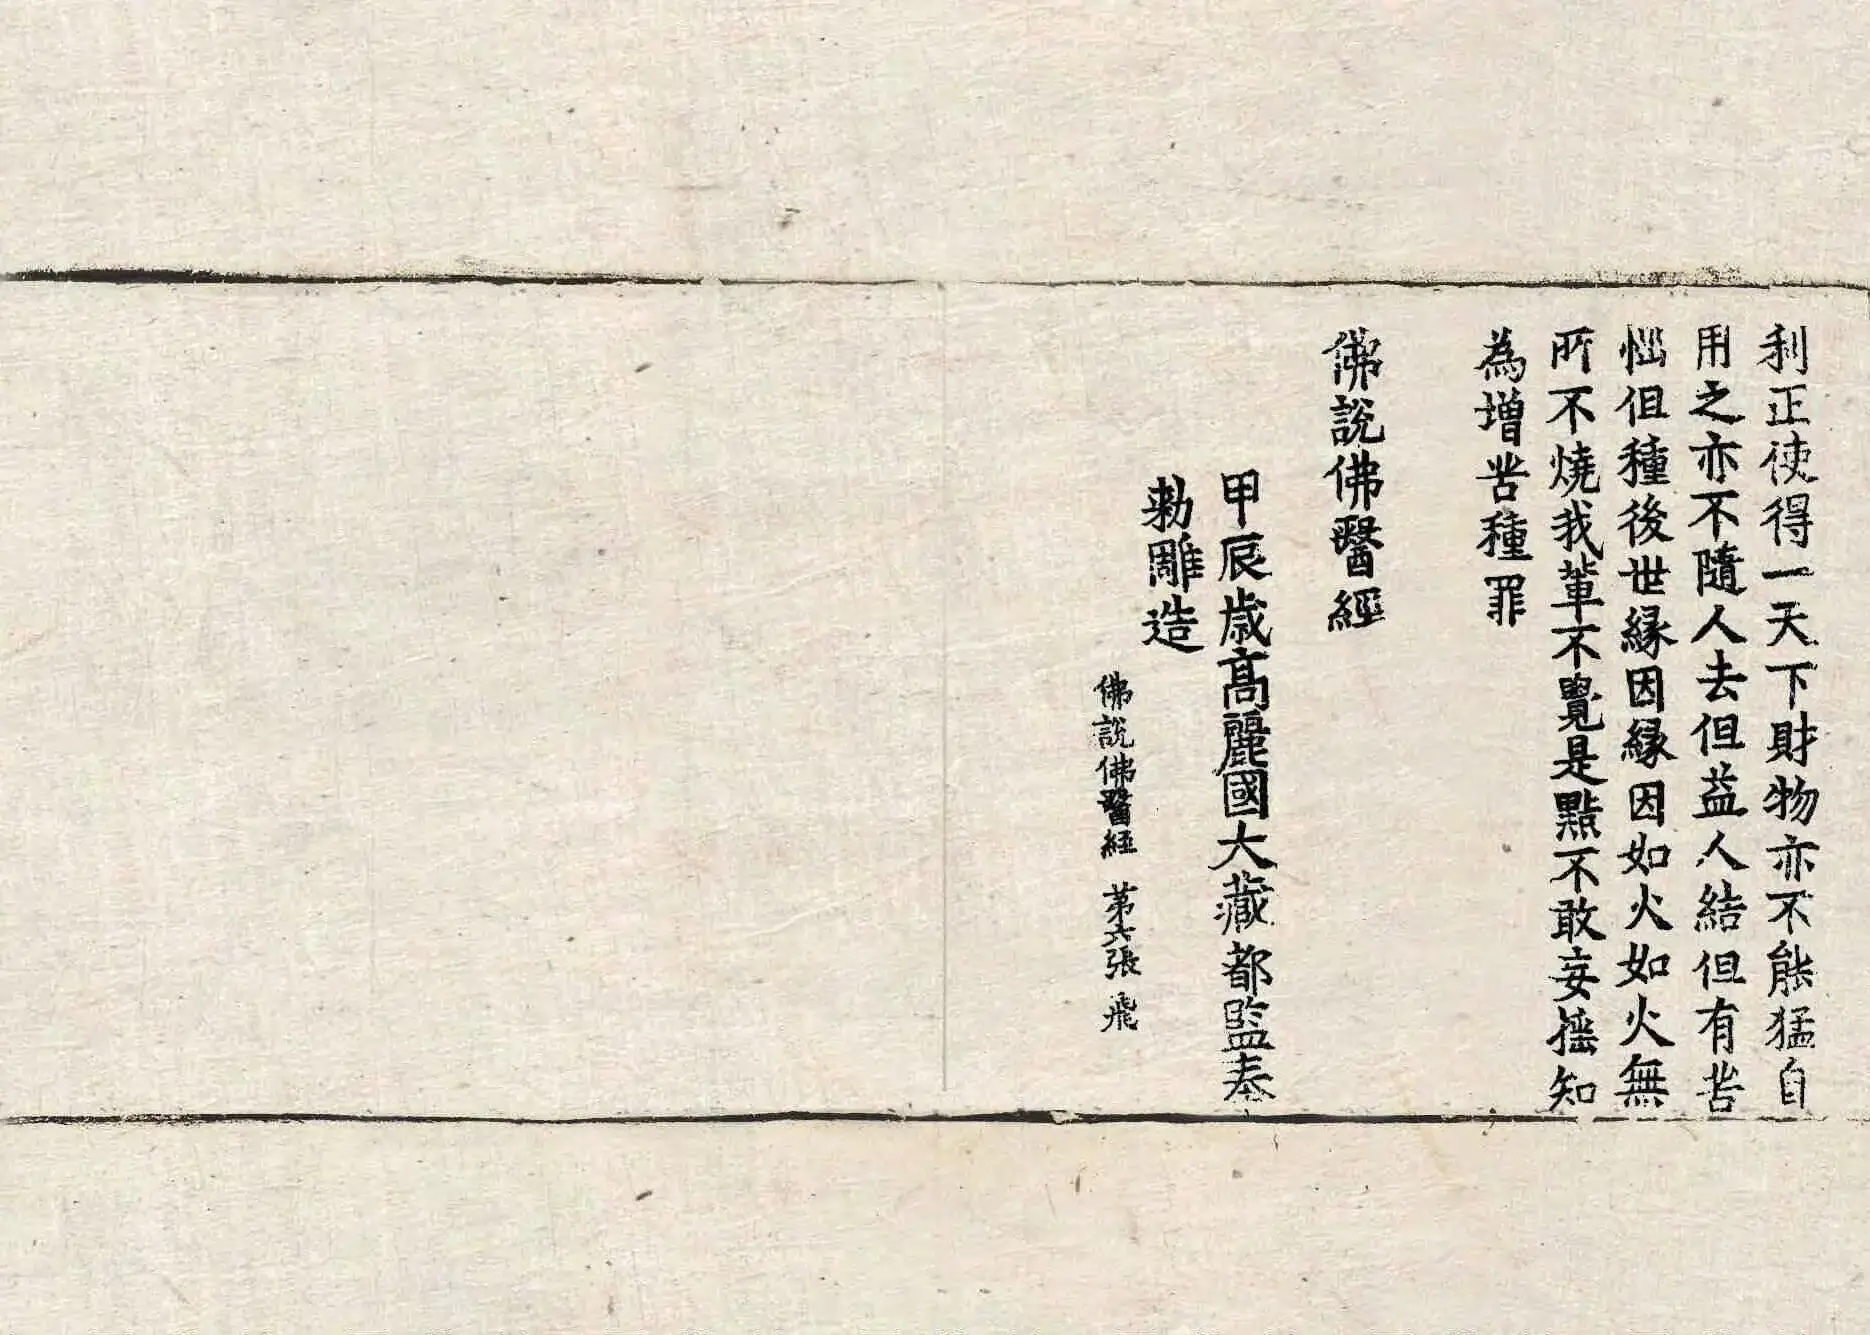 利正使得一天下財物亦不能猛自
用之亦不隨人去但益人結但有苦
惱但種後世緣因緣因如火如火無
所不燒我輩不覺是黠不敢妄搖知
為增苦種罪
佛說佛醫經
甲辰歲高麗國大藏都監奉
勅雕造
佛說佛醫經 第六張 飛